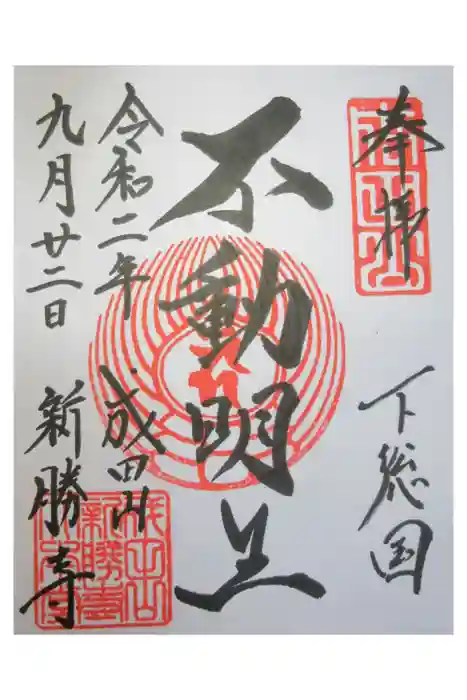 奉拝
下総国
不動明王
令和二年
成田山
九月廿二日
新勝寺
成田山